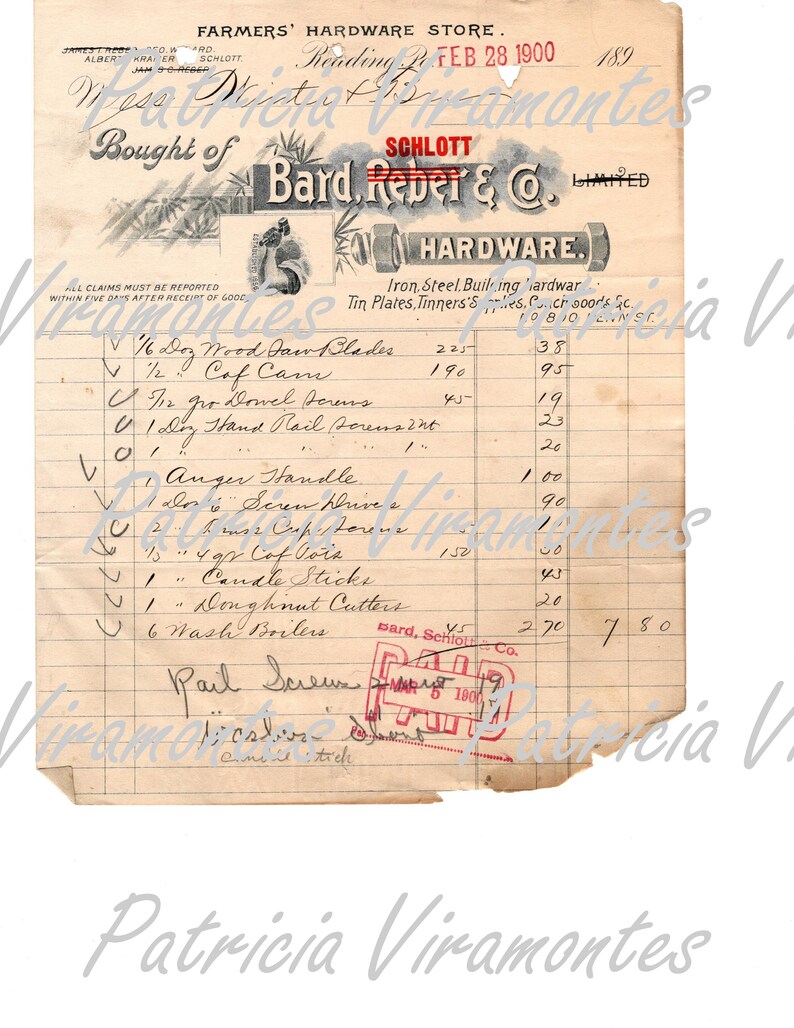 FARMERS' HARDWARE STORE.
JAMES T. REBER. GEO. W. BARD.
ALBERT KRAMER SCHLOTT.
JAMES C. REBER
Reading, Pa. FEB 28 1900 189
Mess
Bought of
SCHLOTT
Bard, Reber & Co. LIMITED
HARDWARE.
ALL CLAIMS MUST BE REPORTED
WITHIN FIVE DAYS AFTER RECEIPT OF GOODS
Iron, Steel, Building Hardware,
Tin Plates, Tinners' Supplies, Coach Goods &c.
PENN ST.
1/6 Doz Wood Saw Blades 225 38
1/2 " Cof Cans 190 95
5/12 gro Dowel Screws 45 19
1 Doz Hand Rail Screws 2 nt 23
1 " " " " 1 " 20
1 Auger Handle 1 00
1 Doz 6" Screw Drivers 90
2 " Brass Cup Screws
1/3 " 4 qr Cof Pots 150 50
1 " Candle Sticks 45
1 " Doughnut Cutters 20
6 Wash Boilers 45 2 70 7 80
Bard, Schlott & Co.
PAID
MAR 5 1900
Rail Screws 2
Patricia Viramontes
Patricia Viramontes
Viramontes
Patricia Viramontes
Patricia Viramontes
Viramontes
Patricia Viramontes
Patricia Viramontes